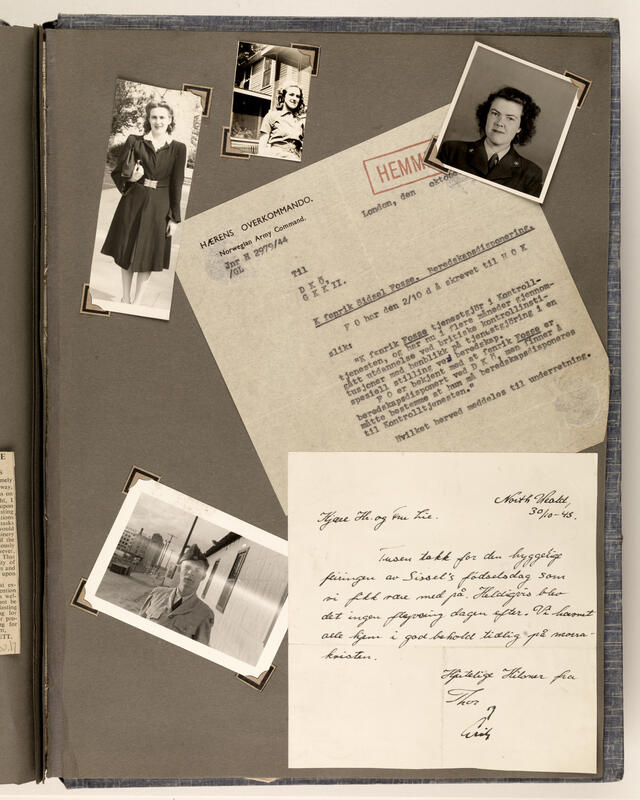 HEMM
HÆRENS OVERKOMMANDO.
Norwegian Army Command.
Jnr H 2979/44
/GL
London, den oktob
Til
D K Ö.
G K K II.
K fenrik Sidsel Fosse. Beredskapsdisponering.
F O har den 2/10 d å skrevet til H O K
slik:
"K fenrik Fosse tjenestgjör i Kontroll-
tjenesten, og har nu i flere måneder gjennom-
gått utdannelse ved britiske kontrollinsti-
tusjoner med henblikk på tjenestgjöring i en
spesiell stilling ved beredskap.
F O er bekjent med at fenrik Fosse er
beredskapsdisponert ved D K Ö, men finner å
måtte bestemme at hun må beredskapsdisponeres
til Kontrolltjenesten."
Hvilket herved meddeles til underretning.
North Weald,
30/10-45.
Kjære Hr. og Fru Lie.
Tusen takk for den hyggelige
feiringen av Sissel's födselsdag som
vi fikk være med på. Heldigvis blev
det ingen flyvning dagen efter. Vi havnet
alle hjem i god behold tidlig på morra-
kvisten.
Hjertelige Hilsner fra
Thor
og